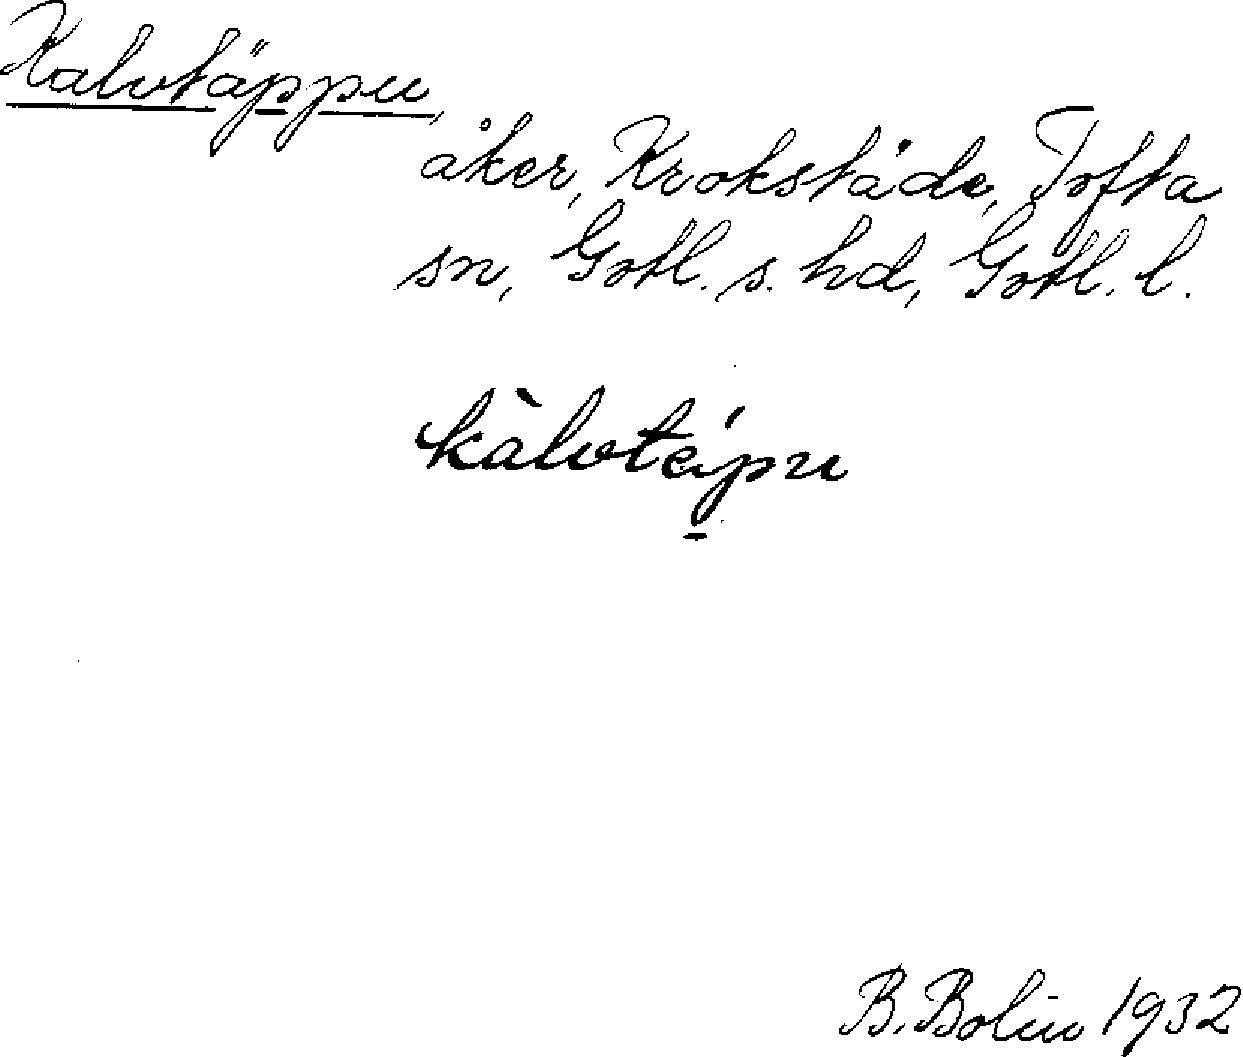 Kalvtäppu,
åker, Krokstäde, Tofta
sn, Gotl. s. hd, Gotl. l.
kàlvtépu
B. Bolin 1932